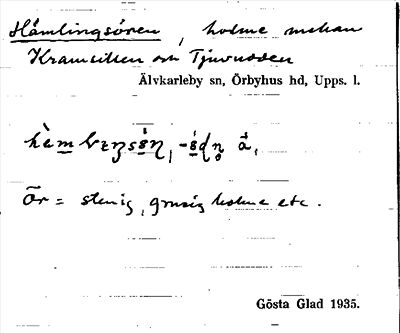 Hämlingsören, holme mellan
Kramsiken och Tjuvudden
Älvkarleby sn, Örbyhus hd, Upps. l.
ör = stenig, grusig holme etc.
Gösta Glad 1935.